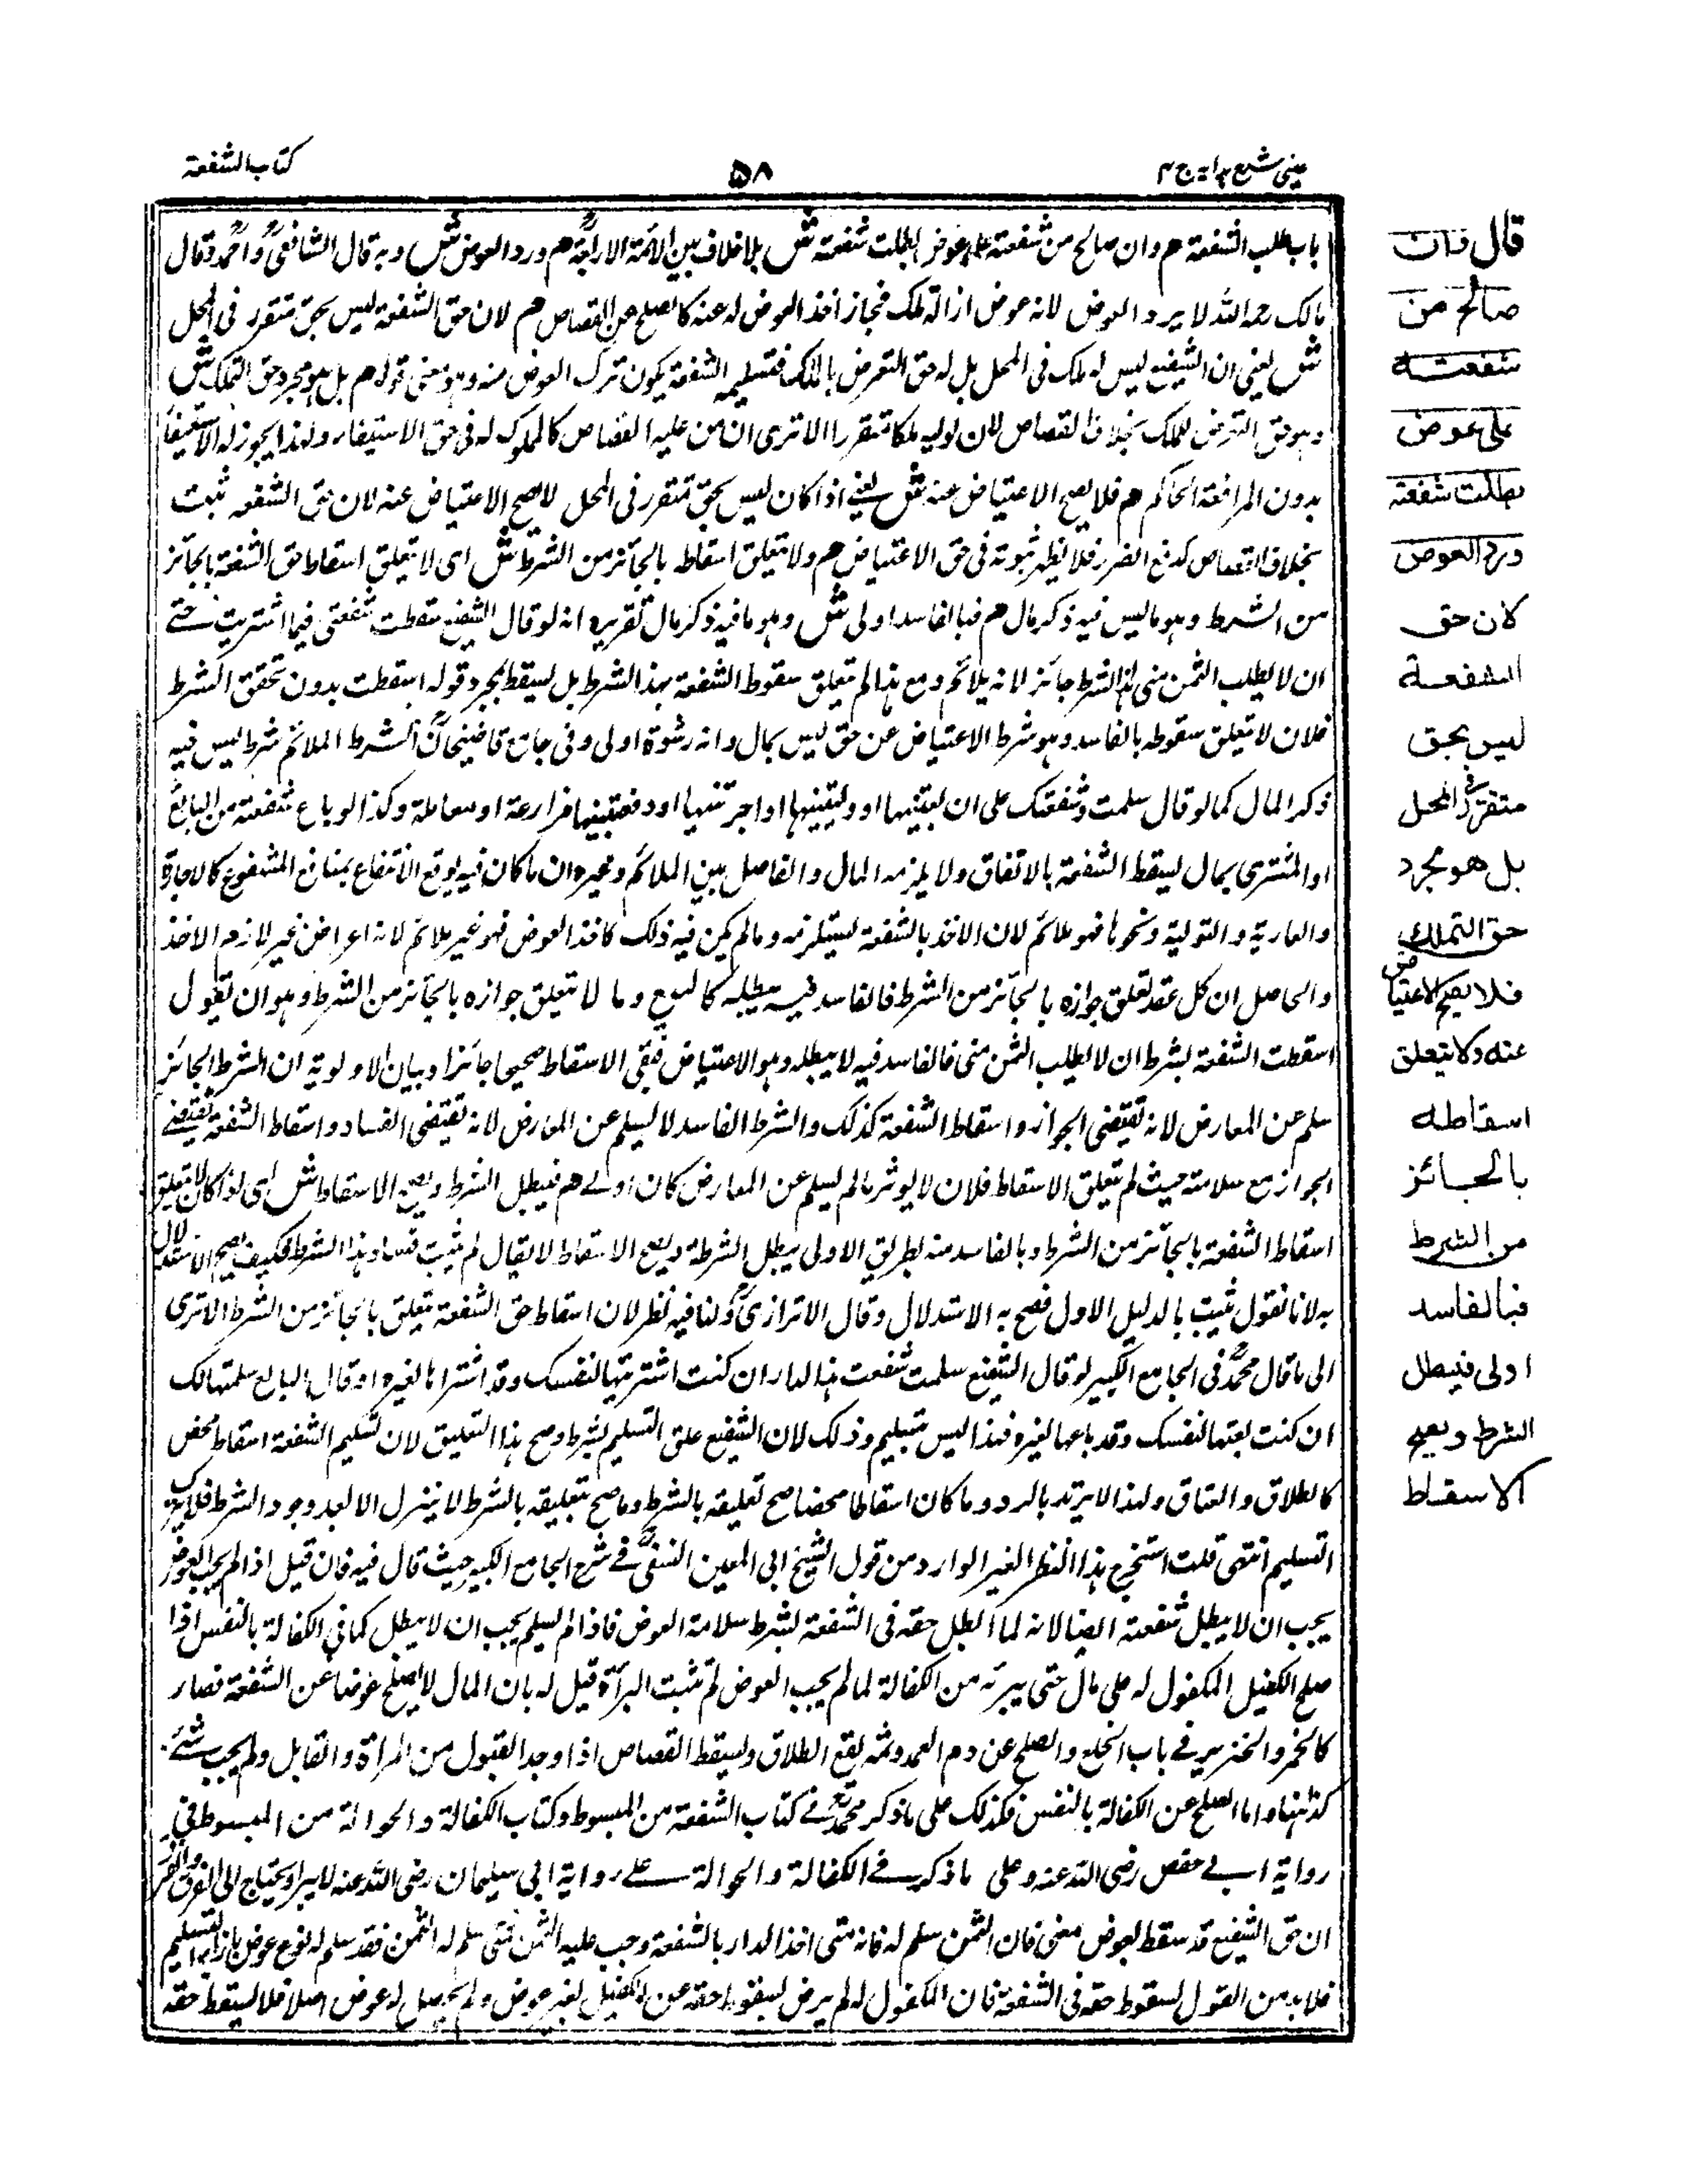 عینی شرح ہدایہ ج ۴
۵۸
کتاب الشفعة
باب طلب الشفعة هم وان صالح من شفعته على عوض بطلت شفعته ش بلا خلاف بین الائمة الاربعة هم ورد العوض ش وبه قال الشافعی واحمد وقال
مالك رحمه الله لا یرد العوض لانه عوض ازالة ملك فجاز اخذ العوض له عنه كالصلح عن القصاص هم لان حق الشفعة لیس بحق متقرر فی المحل
ش یعنی ان الشفیع لیس له ملك فی المحل بل له حق التعرض بالملك فتسلیمه الشفعة یكون ترك العوض منه وهو معنی قوله هم بل هو مجرد حق التملك ش
وهو حق التعرض للملك بخلاف القصاص لان لولیه ملكا متقررا الا تری ان من علیه القصاص كالمملوك له فی حق الاستیفاء ولهذا یجوز له الاستیفاء
بدون المرافعة الحاكم هم فلا یصح الاعتیاض عنه ش یعنی اذا كان لیس بحق متقرر فی المحل لا یصح الاعتیاض عنه لان حق الشفعه ثبت
بخلاف القصاص لدفع الضرر فلا یظهر ثبوته فی حق الاعتیاض هم ولا یتعلق اسقاطه بالجائز من الشرط ش ای لا یتعلق اسقاط حق الشفعة بالجائز
من الشرط وهو ما لیس فیه ذكر مال هم فبالفاسد اولی ش وهو ما فیه ذكر مال تقریره انه لو قال الشفیع سقطت شفعتی فیما اشتریت حتی
ان لا یطلب الثمن منی لهذا الشرط جائز لانه یلائم ومع هذا لم یتعلق سقوط الشفعة بهذا الشرط بل یسقط بمجرد قوله اسقطت بدون تحقق الشرط
فلان لا یتعلق سقوطه بالفاسد وهو شرط الاعتیاض عن حق لیس بمال وانه رشوة اولی وفی جامع قاضیخان الشرط الملائم شرط لیس فیه
ذكر المال كما لو قال سلمت شفعتك علی ان بعتنیها او ولیتنیها او اجرتنیها او دفعتنیها مزارعة او معاملة وكذا لو باع شفعته من البائع
او المشتری بمال یسقط الشفعة بالاتفاق ولا یلزمه المال والفاصل بین الملائم وغیره ان ما كان فیه توقع الانتفاع بمنافع المشفوع كالاجارة
والعاریة والتولیة ونحوها فهو ملائم لان الاخذ بالشفعة یستلزمه وما لم یكن فیه ذلك كاخذ العوض فهو غیر ملائم لانه اعراض غیر لازمه الاخذ
والحاصل ان كل عقد تعلق جوازه بالجائز من الشرط فالفاسد فیه یبطله كالبیع وما لا یتعلق جوازه بالجائز من الشرط وهو ان تقول
اسقطت الشفعة بشرط ان لا یطلب الثمن منی فالفاسد فیه لا یبطله وهو الاعتیاض فبقی الاسقاط صحیحا جائزا وبیان الاولویة ان الشرط الجائز
سلم عن المعارض لانه یقتضی الجواز واسقاط الشفعة كذلك والشرط الفاسد لا یسلم عن المعارض لانه یقتضی الفساد واسقاط الشفعة یقتضی
الجواز مع سلامته حیث لم یتعلق الاسقاط فلان لا یوثر ما لم یسلم عن المعارض كان اولی هم فیبطل الشرط ویصح الاسقاط ش ای اذا كان لا یتعلق
اسقاط الشفعة بالجائز من الشرط وبالفاسد منه بطریق الاولی یبطل الشرط ویصح الاسقاط لا یقال لم یثبت فساد هذا الشرط فكیف یصح الاستدلال
به لانا نقول ثبت بالدلیل الاول فصح به الاستدلال وقال الاترازی ولنا فیه نظر لان اسقاط حق الشفعة یتعلق بالجائز من الشرط الا تری
الی ما قال محمد فی الجامع الكبیر لو قال الشفیع سلمت شفعت هذا الدار ان كنت اشتریتها لنفسك وقد اشتراها لغیره او قال البائع سلمتها لك
ان كنت بعتها لنفسك وقد باعها لغیره فهذا لیس بتسلیم وذلك لان الشفیع علق التسلیم بشرط وصح هذا التعلیق لان تسلیم الشفعة اسقاط محض
كالطلاق والعتاق ولهذا لا یرتد بالرد وما كان اسقاطا محضا صح تعلیقه بالشرط وما صح تعلیقه بالشرط لا ینزل الا بعد وجود الشرط فلا یترك
التسلیم انتهی قلت استخرج هذا النظر الغیر الوارد من قول الشیخ ابی المعین النسفی فی شرح الجامع الكبیر حیث قال فیه فان قیل اذا لم یجب العوض
یجب ان لا یبطل شفعته ایضا لانه لما ابطل حقه فی الشفعة بشرط سلامة العوض فاذا لم یسلم یجب ان لا یبطل كما فی الكفالة بالنفس اذا
صلح الكفیل المكفول له علی مال حتی یبرئه من الكفالة لما لم یجب العوض لم تثبت البرأة قیل له بان المال لا یصلح عوضا عن الشفعة فصار
كالخمر والخنزیر فی باب الخلع والصلح عن دم العمد وثمه یقع الطلاق ویسقط القصاص اذا وجد القبول من المرأة والقاتل ولم یجب شئ
كذا هنا واما الصلح عن الكفالة بالنفس فكذلك علی ما ذكر محمد فی كتاب الشفعة من المبسوط وكتاب الكفالة والحوالة من المبسوط فی
روایة ابی حفص رضی الله عنه وعلی ما ذكر فی الكفالة والحوالة علی روایة ابی سلیمان رضی الله عنه لا یبرأ ویحتاج الی الفرق والفرق
ان حق الشفیع قد سقط بعوض معنی فان الثمن سلم له فانه متی اخذ الدار بالشفعة وجب علیه الثمن فمتی سلم له الثمن فقد سلم له نوع عوض بازاء التسلیم
فلا بد من القول بسقوط حقه فی الشفعة فان المكفول له لم یرض بسقوط حقه عن الكفیل بغیر عوض ولم یحصل له عوض اصلا فلا یسقط حقه
قال فان
صالح من
شفعته
علی عوض
بطلت شفعته
ورد العوض
لان حق
الشفعة
لیس بحق
متقرر فی المحل
بل هو مجرد
حق التملك
فلا یصح الاعتیاض
عنه ولا یتعلق
اسقاطه
بالجائز
من الشرط
فبالفاسد
اولی فیبطل
الشرط ویصح
الاسقاط